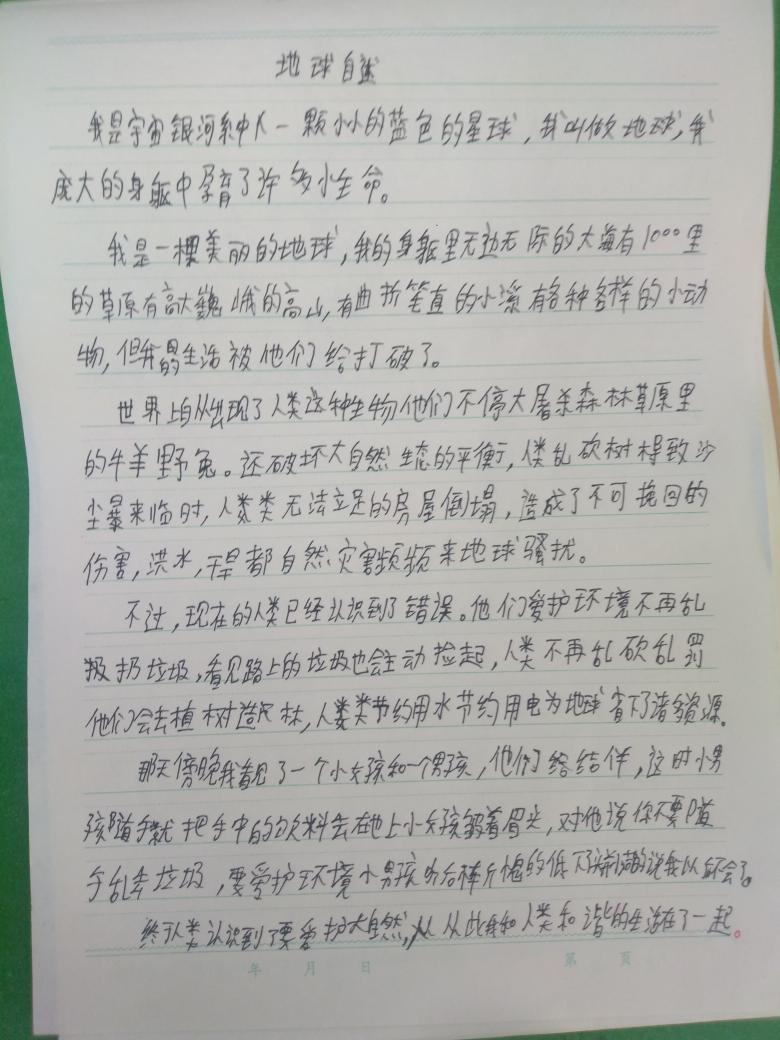 地球自述
我是宇宙银河系中一颗小小的蓝色的星球，我叫做地球，我
庞大的身躯中孕育了许多小生命。
我是一棵美丽的地球，我的身躯里无边无际的大海有1000里
的草原有高大巍峨的高山，有曲折笔直的小溪有各种各样的小动
物，但我的生活被他们给打破了。
世界上自从出现了人类这种生物他们不停大屠杀森林草原里
的牛羊野兔。还破坏大自然生态的平衡，人类乱砍树木导致沙
尘暴来临时，人类无法立足的房屋倒塌，造成了不可挽回的
伤害，洪水，干旱都自然灾害频频来地球骚扰。
不过，现在的人类已经认识到了错误。他们爱护环境不再乱
扔垃圾，看见路上的垃圾也会主动捡起，人类不再乱砍乱
他们会去植树造林，人类节约用水节约用电为地球省下了诸多资源。
那天傍晚我看见了一个小女孩和一个男孩，他们结伴，这时小男
孩随手就把手中的饮料丢在地上小女孩皱着眉头，对他说你不要随
手乱丢垃圾，要爱护环境小男孩听后惭愧的低下头 的说我以后不会了。
终于人类认识到了要爱护大自然，从此我和人类和谐的生活在了一起。
年 月 日 第 页